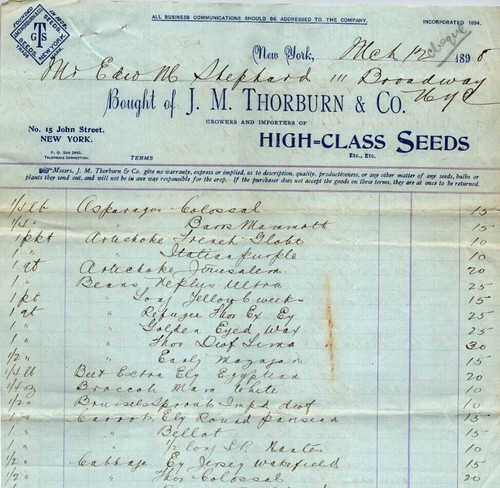 ALL BUSINESS COMMUNICATIONS SHOULD BE ADDRESSED TO THE COMPANY.
INCORPORATED 1894.
GTS
SEEDS
NEW YORK.
cheque
New York, Mch 12 1898
Mr Edw M Shephard 111 Broadway
NYC
Bought of J. M. THORBURN & CO.
GROWERS AND IMPORTERS OF
No. 15 John Street,
NEW YORK.
HIGH=CLASS SEEDS
Etc., Etc.
TELEPHONE CONNECTION.
TERMS
Messrs. J. M. Thorburn & Co. give no warranty, express or implied, as to description, quality, productiveness, or any other matter of any seeds, bulbs or
plants they send out, and will not be in any way responsible for the crop. If the purchaser does not accept the goods on these terms, they are at once to be returned.
1/4 lb Asparagus Colossal 15
1/4 " " Barrs Mammoth 15
1 pkt Artichoke French Globe 10
1 " " Italian purple 10
1 qt Artichoke Jerusalem 20
1 " Beans Ne plus Ultra 25
1 pt " Long Yellow 6 weeks 15
1 qt " Refugee Thor Ex Ey 25
1 " " Golden Eyed Wax 25
1 " " Thor Dwf Lima 30
1/2 " " Early Mazagan 15
1/4 lb Beet Extra Ely Egyptian 20
1/4 oz Broccoli Mam White 10
1/2 " Brussels Sprouts Impd dwf 10
1 " Carrot Ely Round Parisian 15
1 " " Bellot 15
1 " " 1/2 long Nantes 10
1/2 " Cabbage Ey Jersey Wakefield 15
1/2 " " Thor Colossal 20